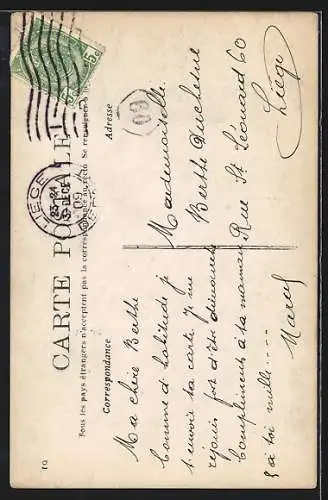 CARTE POSTALE
Tous les pays étrangers n'acceptent pas la correspondance au recto. Se renseigner à
Correspondance
Adresse
Ma chère Berthe
Comme d'habitude je
t'envoie ta carte. Je me
réjouis fort d'être dimanche
Compliments à ta maman
& à toi mille .....
Marcel
Mademoiselle
Berthe Duchesne
Rue St Léonard 60
Liège
60
5c
5c
LIEGE
DEC
09
19